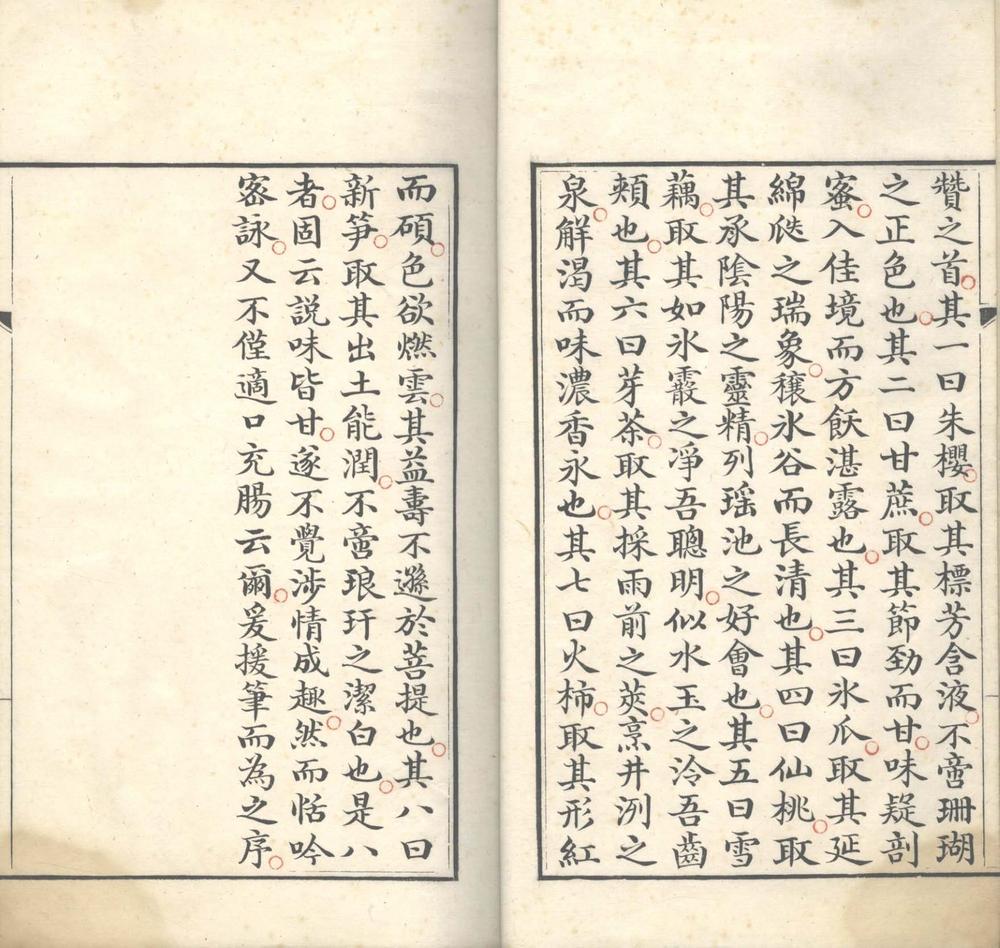 贊之首其一曰朱櫻取其標芳含液不啻珊瑚
之正色也其二曰甘蔗取其節勁而甘味疑剖
蜜入佳境而方飫湛露也其三曰氷瓜取其延
綿瓞之瑞象穣氷谷而長清也其四曰仙桃取
其承陰陽之靈精列瑶池之好會也其五曰雪
藕取其如氷霰之淨吾聰明似水玉之泠吾齒
頰也其六曰芽茶取其採雨前之莢烹井洌之
泉解渴而味濃香永也其七曰火柿取其形紅
而碩色欲燃雲其益壽不遜於菩提也其八曰
新笋取其出土能潤不啻琅玕之潔白也是八
者固云説味皆甘遂不覺涉情成趣然而恬吟
宻詠又不僅適口充腸云爾爰援筆而為之序